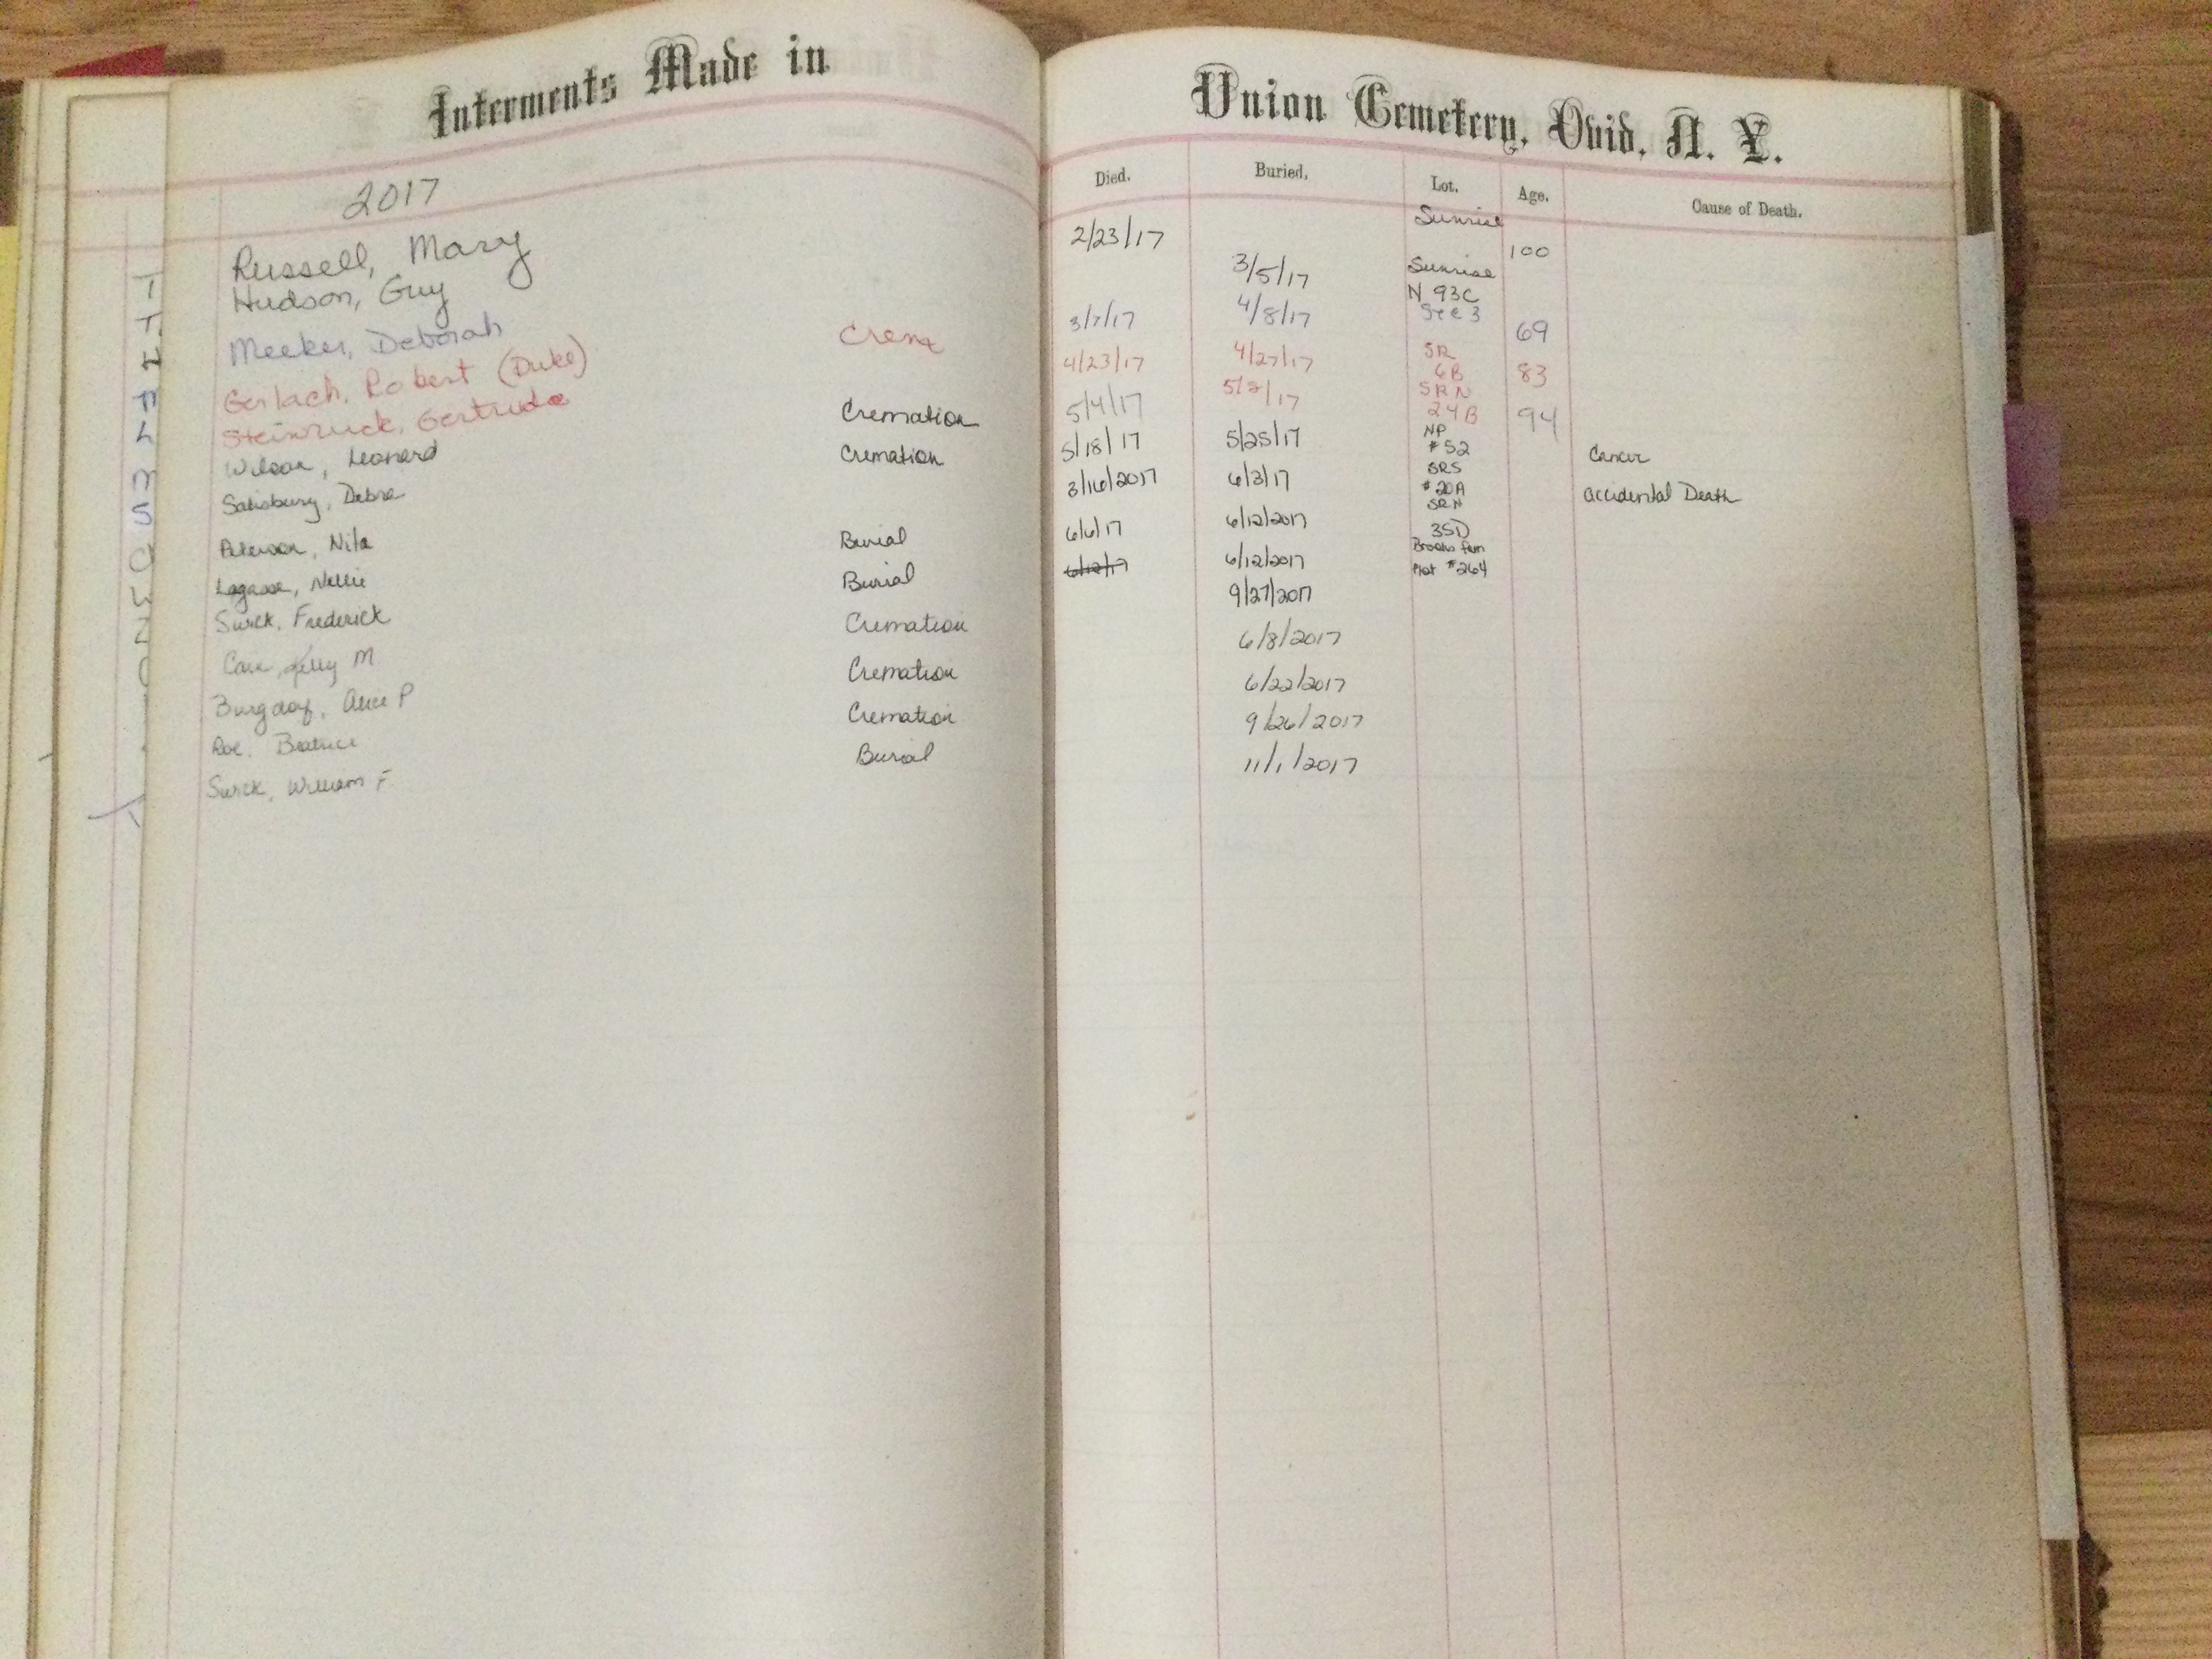 Interments Made in Union Cemetery, Ovid, N. Y.
Died. Buried, Lot. Age. Cause of Death.
2017
Russell, Mary 2/23/17 Sunrise 100
Hudson, Guy 3/5/17 Sunrise N 93C
Meeker, Deborah Crema 3/7/17 4/8/17 Sec 3 69
Gerlach, Robert (Duke) 4/23/17 4/27/17 SR 6B 83
Steinruck, Gertrude 5/4/17 5/8/17 SRN 24B 94
Wilson, Leonard Cremation 5/18/17 5/25/17 NP #52 Cancer
Salisbury, Debra Cremation 3/16/2017 6/3/17 SRS #20A accidental Death
Peterson, Nita Burial 6/6/17 6/12/2017 SRN 35D
Lagasse, Nellie Burial 6/12/17 6/12/2017 Brooks fam Plot #264
Surek, Frederick Cremation 9/27/2017
Kelly M Cremation 6/8/2017
Burgdorf, Alice P Cremation 6/22/2017
Roe, Beatrice Burial 9/26/2017
Surek, William F 11/1/2017